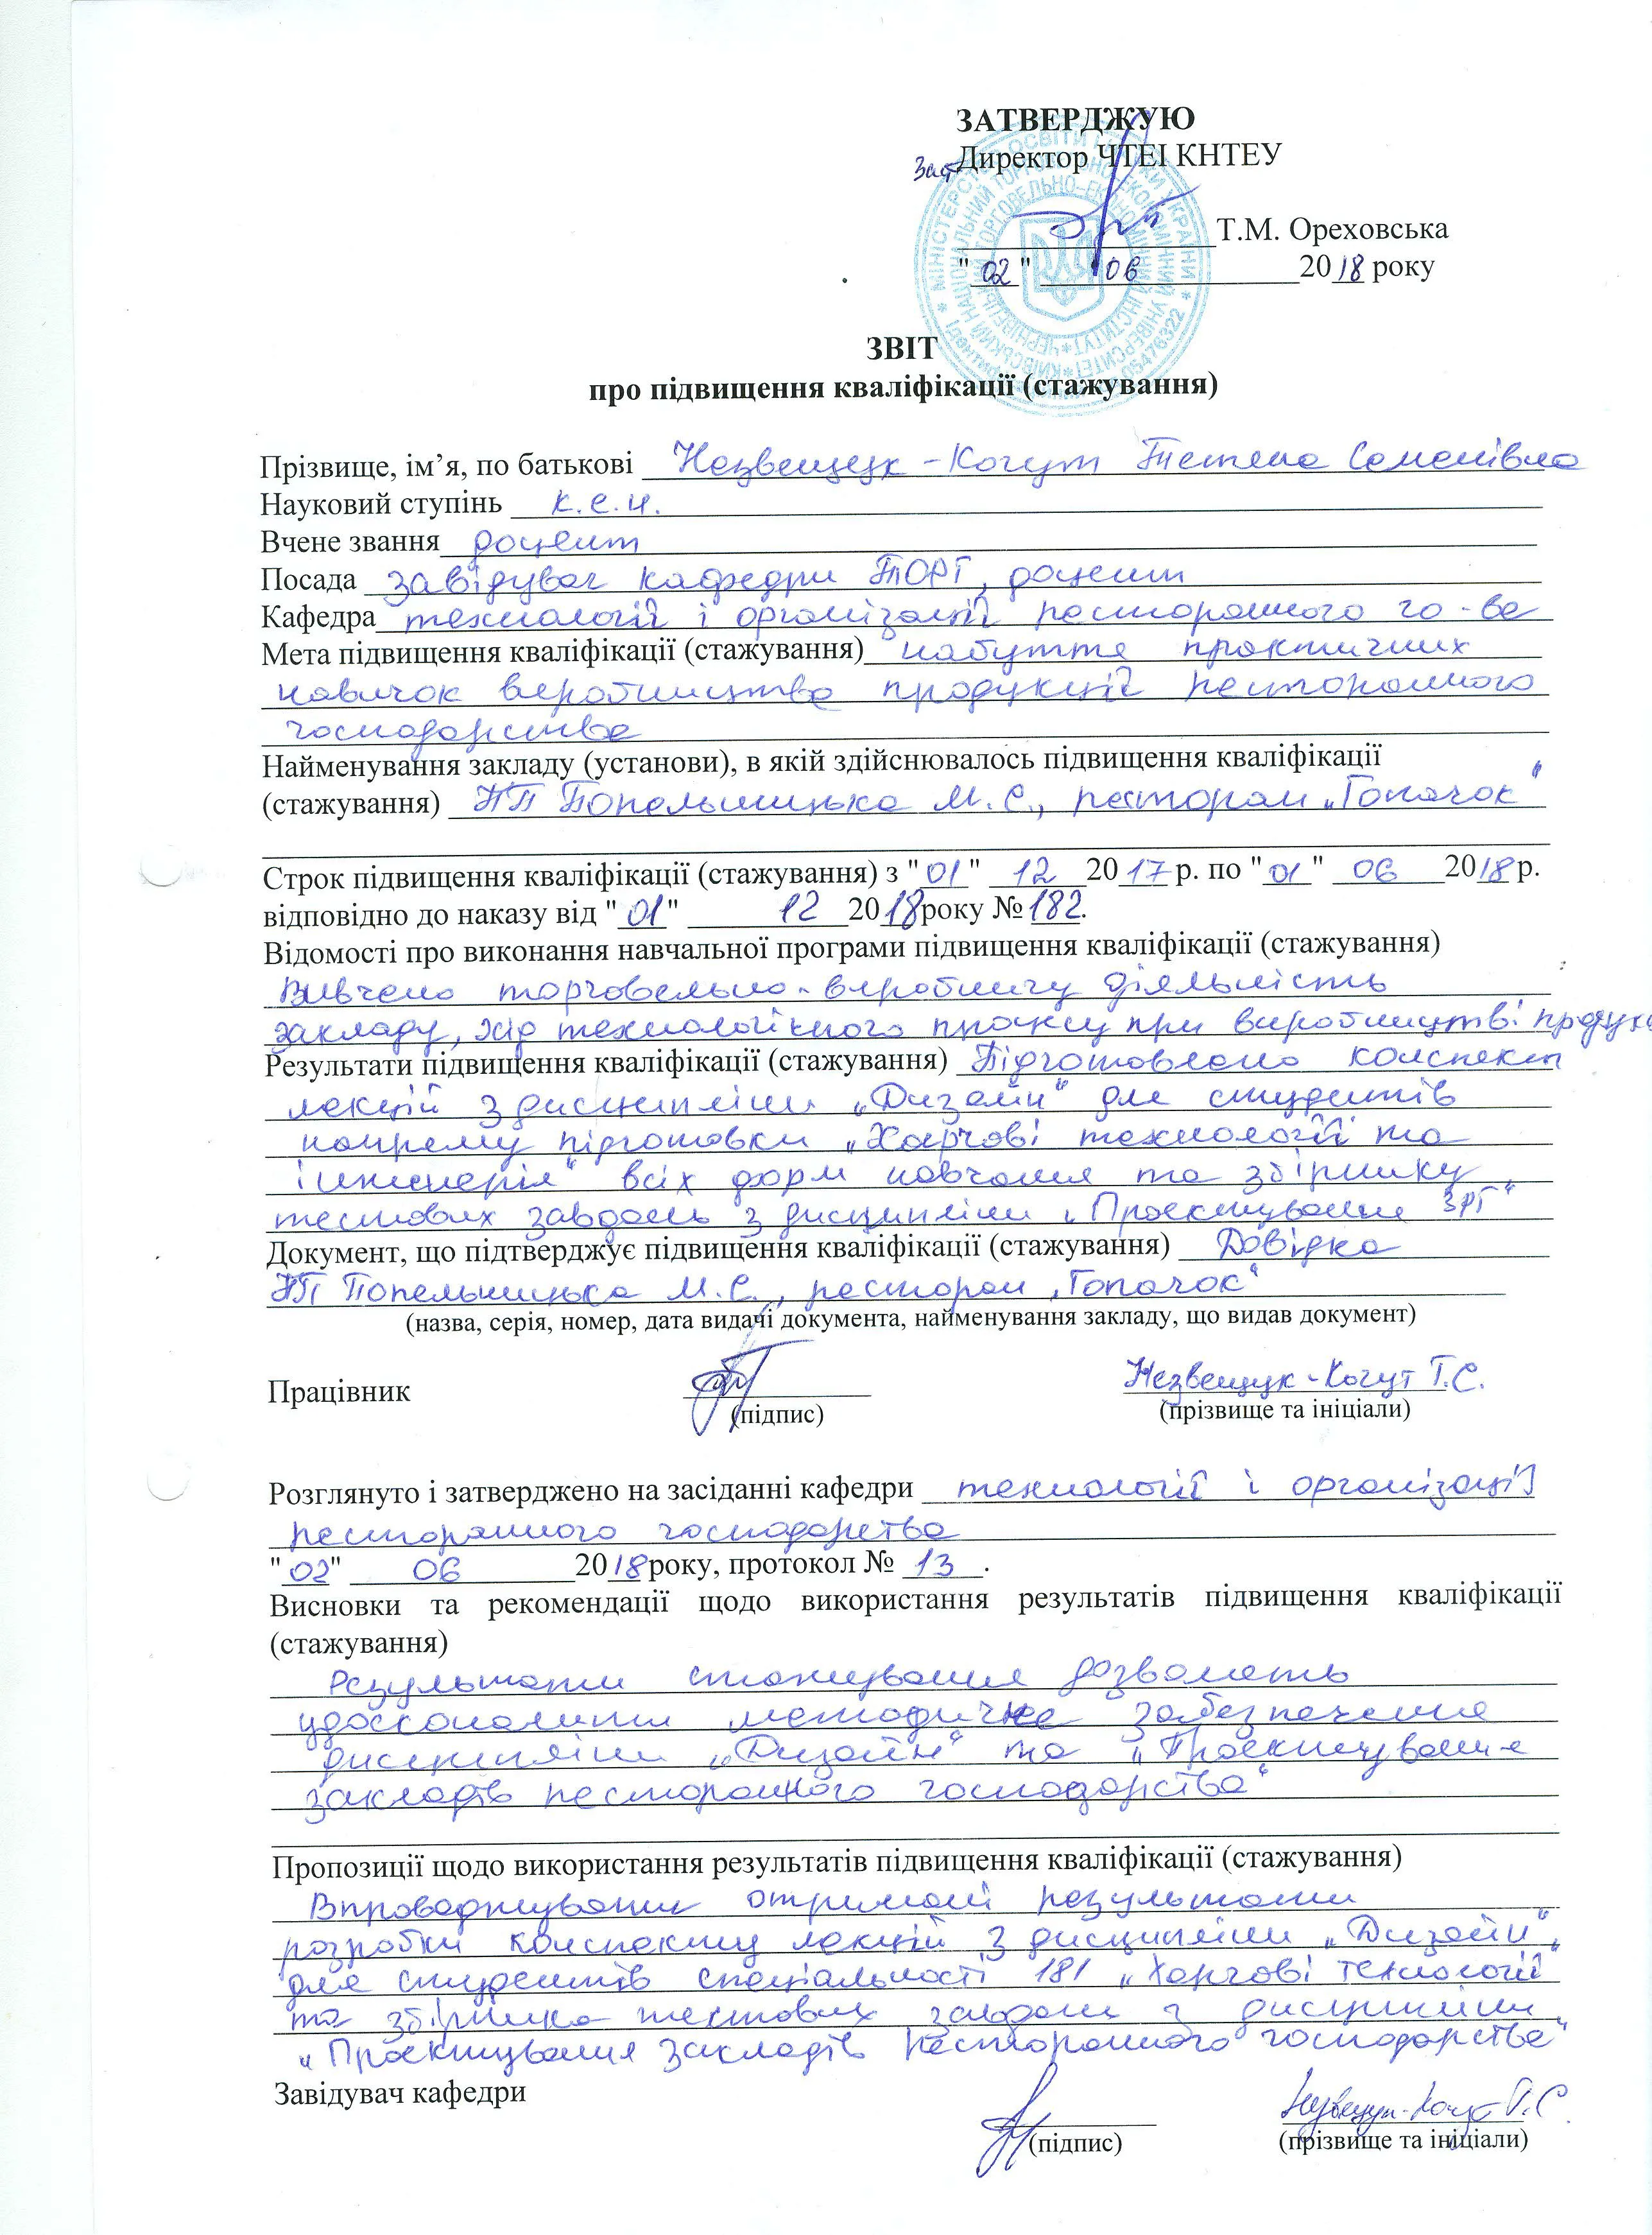 ЗАТВЕРДЖУЮ
Заст. Директор ЧТЕІ КНТЕУ
Т.М. Ореховська
"02" 06 2018 року
ЗВІТ
про підвищення кваліфікації (стажування)
Прізвище, ім’я, по батькові Незвещук-Когут Тетяна Семенівна
Науковий ступінь к.е.н.
Вчене звання доцент
Посада завідувач кафедри ТОРГ, доцент
Кафедра технології і організації ресторанного го-ва
Мета підвищення кваліфікації (стажування) набуття практичних
навичок виробництва продукції ресторанного
господарства
Найменування закладу (установи), в якій здійснювалось підвищення кваліфікації
(стажування) ПП Попельницька М.С., ресторан „Гопачок“
Строк підвищення кваліфікації (стажування) з "01" 12 2017 р. по "01" 06 2018 р.
відповідно до наказу від "01" 12 2018 року № 182.
Відомості про виконання навчальної програми підвищення кваліфікації (стажування)
Вивчено торговельно-виробничу діяльність
закладу, хід технологічного процесу при виробництві
Результати підвищення кваліфікації (стажування) Підготовлено конспект
лекцій з дисципліни „Дизайн“ для студентів
напряму підготовки „Харчові технології та
інженерія“ всіх форм навчання та збірнику
тестових завдань з дисципліни „Проектування ЗРГ“
Документ, що підтверджує підвищення кваліфікації (стажування) Довідка
ПП Попельницька М.С., ресторан „Гопачок“
(назва, серія, номер, дата видачі документа, найменування закладу, що видав документ)
Працівник Незвещук-Когут Т.С.
(підпис) (прізвище та ініціали)
Розглянуто і затверджено на засіданні кафедри технології і організації
ресторанного господарства
"02" 06 2018 року, протокол № 13.
Висновки та рекомендації щодо використання результатів підвищення кваліфікації
(стажування)
Результати стажування дозволять
удосконалити методичне забезпечення
дисципліни „Дизайн“ та „Проектування
закладів ресторанного господарства“
Пропозиції щодо використання результатів підвищення кваліфікації (стажування)
Впроваджування отримані результати
розробки конспекту лекцій з дисципліни „Дизайн“,
для студентів спеціальності 181 „Харчові технології“
та збірника тестових завдань з дисципліни
„Проектування закладів ресторанного господарства“
Завідувач кафедри Незвещук-Когут Т.С.
(підпис) (прізвище та ініціали)